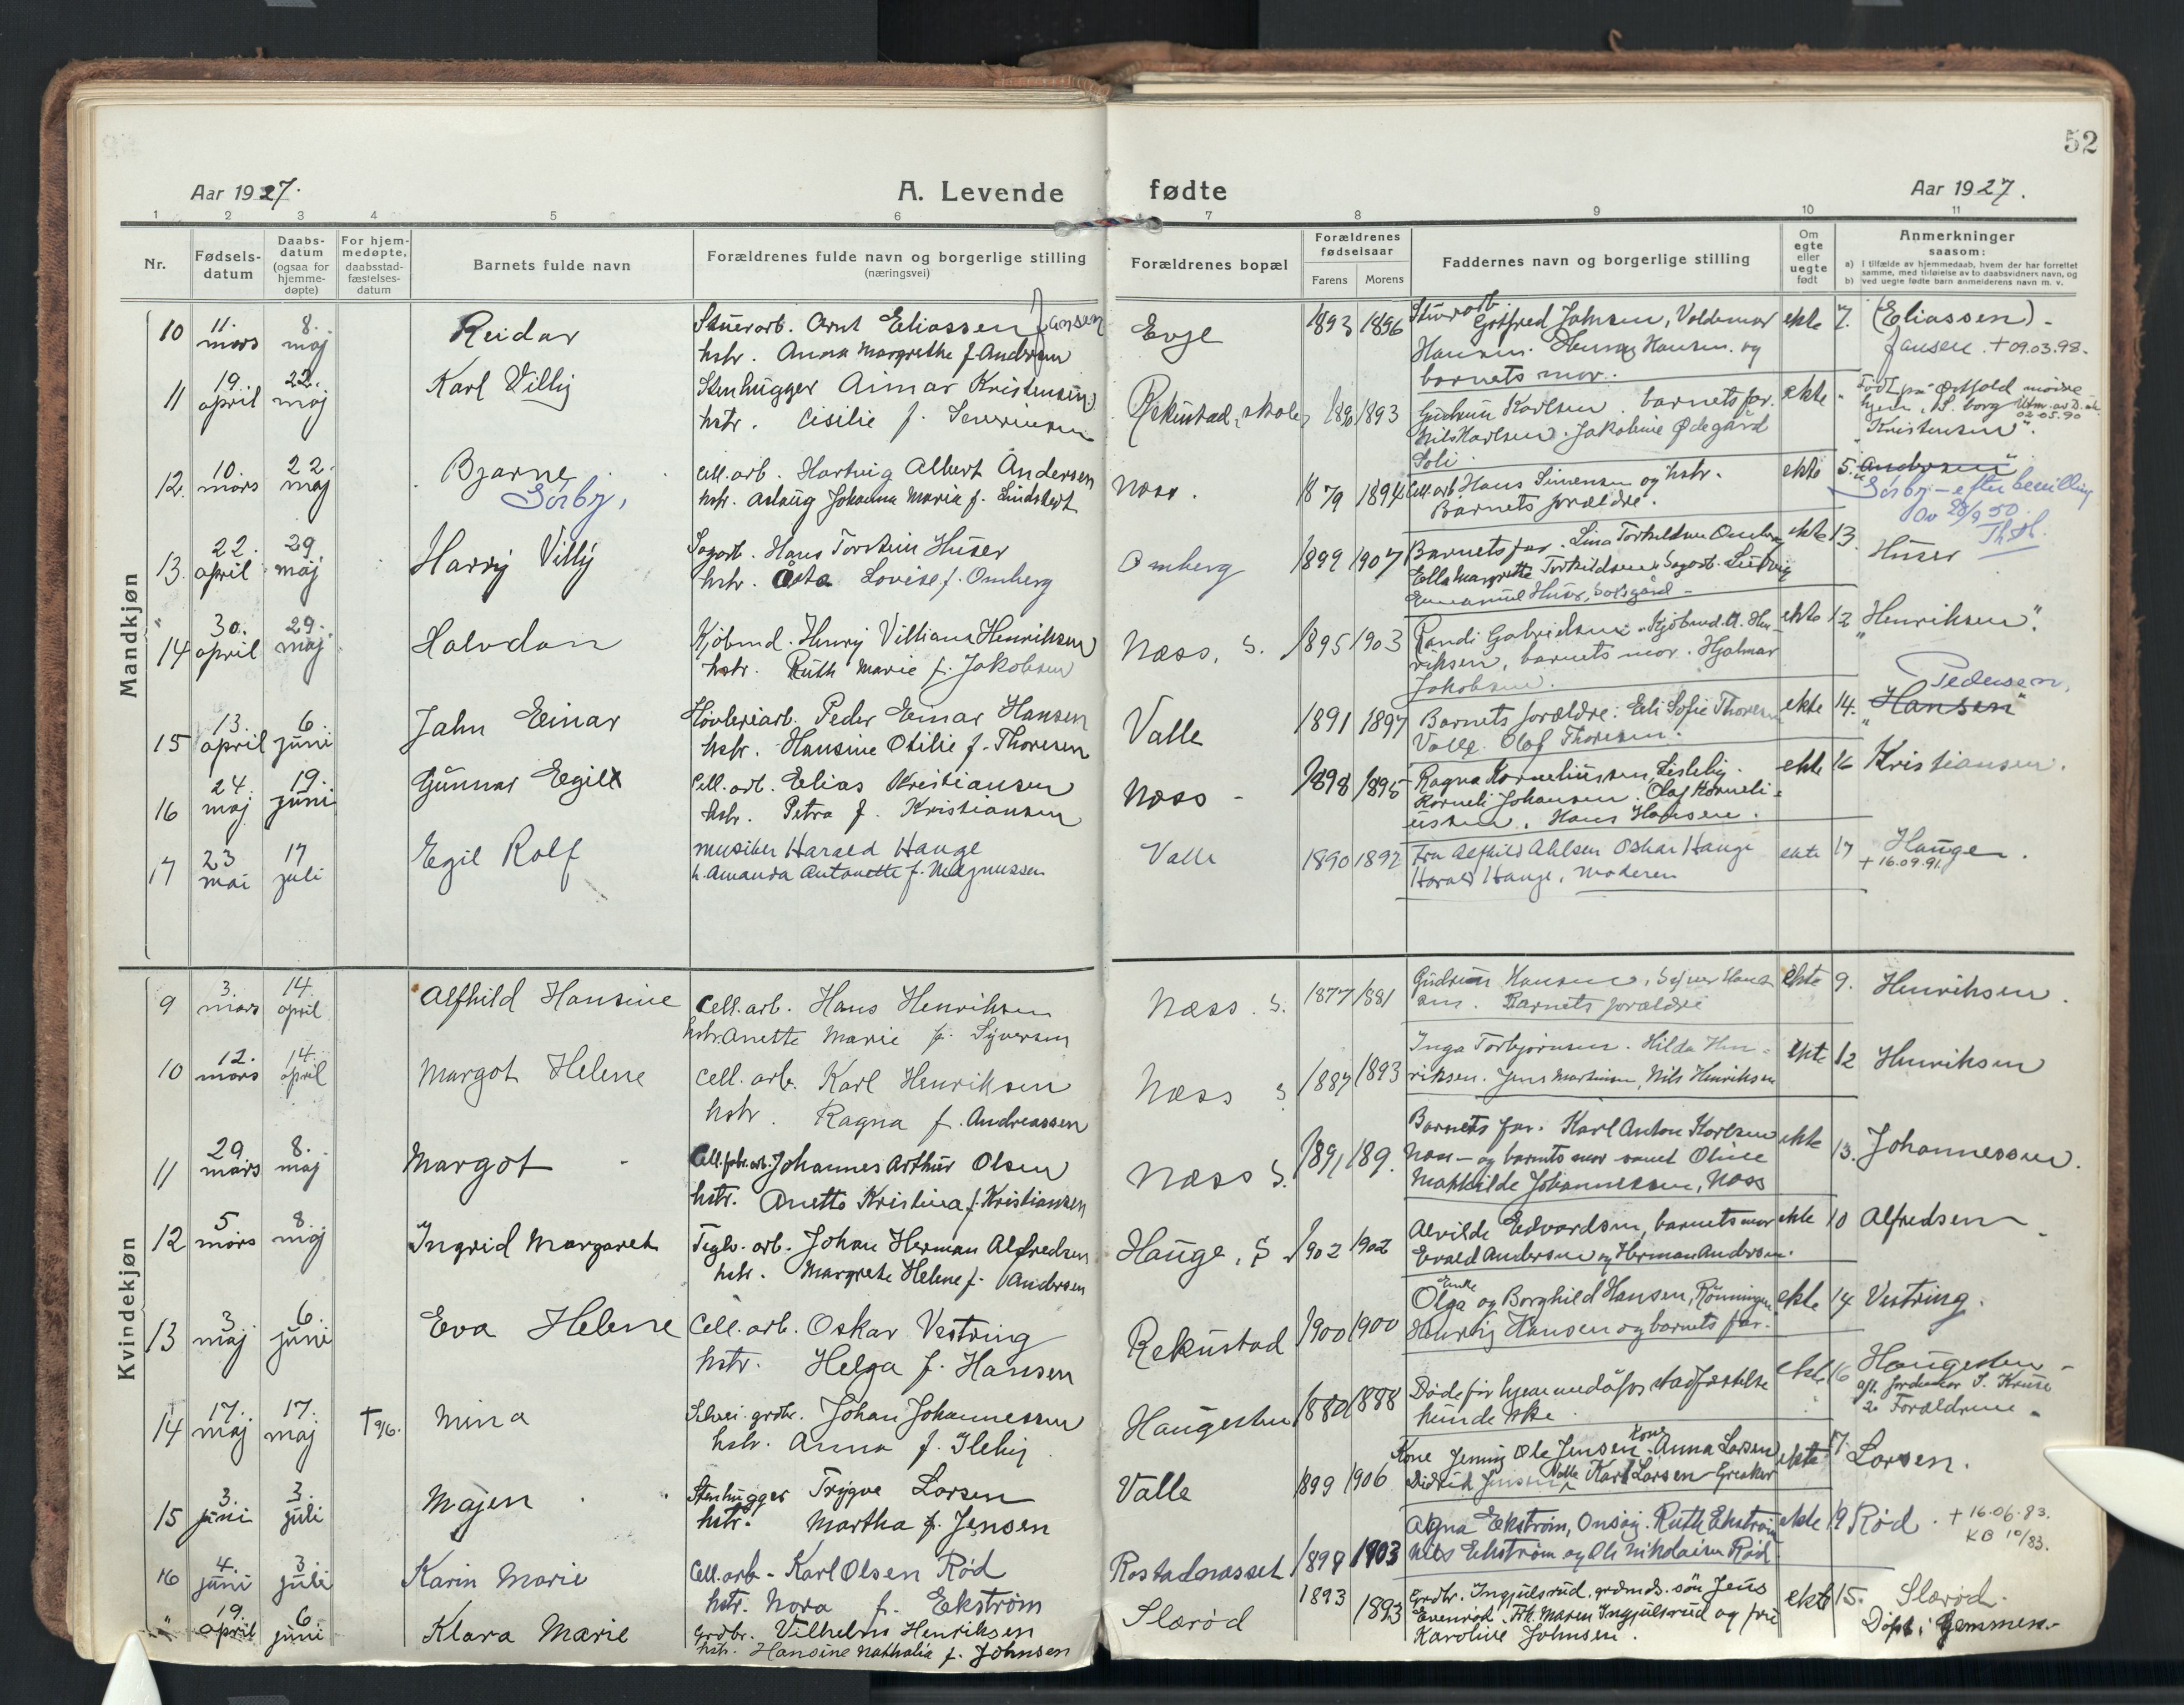 52
Aar 1927.
A. Levende fødte
Aar 1927.
1 2 3 4 5 6 7 8 9 10 11
Nr.
Fødsels-
datum
Daabs-
datum
(ogsaa for
hjemme-
døpte)
For hjem-
medøpte,
daabsstad-
fæstelses-
datum
Barnets fulde navn
Forældrenes fulde navn og borgerlige stilling
(næringsvei)
Forældrenes bopæl
Forældrenes
fødselsaar
Farens Morens
Faddernes navn og borgerlige stilling
Om
egte
eller
uegte
født
Anmerkninger
saasom:
a) I tilfælde av hjemmedaab, hvem der har forrettet
samme, med tilføielse av to daabsvidners navn, og
b) ved uegte fødte barn anmelderens navn m. v.
Mandkjøn
10 11. mars 8. maj Reidar
Stuerarb. Arnt Eliassen Jansen
hstr. Anna Margrethe f. Andersen
Evje 1893 1896
Stuerarb. Gotfred Jahnsen, Valdemar
Hansen. Henny Hansen. og
barnets mor.
ekte 7. (Eliassen) -
Jansen. + 09.03.98.
11 19. april 22. maj Karl Villy
Stenhugger Aimar Kristensen
hstr. Cisilie f. Severinsen
Rekustad, skole 1890 1893
Gudrun Karlsen. barnets far.
Nils Karlsen. Jakobine Ødegård
Soli.
ekte - Født på Østfold mødre
hjem, S. borg Utm. av D.
02.05.90
"Kristensen".
12. 10. mars 22. maj Bjarne
Sörby,
Cell. arb. Hartvig Albert Andersen
hstr. Aslaug Johanna Maria f. Lindstedt
Næss. 1879 1894
Cell. arb Hans Simensen og hstr.
Barnets forældre.
ekte 5. "Andersen"
Sörby - efter bevilling
av 28/9 50.
Th.H.
13. 22. april 29. maj Harry Villy
Sagarb. Hans Torstein Huser
hstr. Åsta Lovise f. Omberg
Omberg 1899 1907
Barnets far. Lina Torkildsen Omberg
Ella Margrethe Torkildsen. Sagarb. Ludvig
Emmanuel Huser, Solsgård -
ekte 13. Huser
14 30. april 29. maj Halvdan
Kjöbmd. Henry Villiam Henriksen
hstr. Ruth Marie f. Jakobsen
Næss, S. 1895 1903
Randi Gabrielsen. Kjöbmd. A. Hen-
riksen, barnets mor. Hjalmar
Jakobsen.
ekte 12 "Henriksen".
15 13. april 6. juni Jahn Einar
Hövleriarb. Peder Einar Hansen
hstr. Hansine Otilie f. Thoresen
Valle 1891 1897
Barnets forældre: Eli Sofie Thoresen
Valle. Olaf Thoresen.
ekte 14. Pedersen,
"Hansen"
16 24. maj 19. juni Gunnar Egil
Cell. arb. Elias Kristiansen
hstr. Petra f. Kristiansen
Næss - 1898 1895
Ragna Korneliussen, Lisleby.
Korneli Johansen. Olaf Korneli-
ussen. Hans Hansen.
ekte 16 Kristiansen.
17 23 mai 17 juli Egil Rolf
Musiker Harald Hauge
h. Amanda Antonette f. Magnussen
Valle 1890 1892
Fru Alfhild Ahlsen Oskar Hauge
Harald Hauge, Moderen
ekte 17 Hauge.
+ 16.09.91.
Kvindekjøn
9 3. mars 14. april Alfhild Hansine
Cell. arb. Hans Henriksen
hstr. Anette Marie f. Syversen
Næss. S. 1877 1881
Gudrun Hansen, Syver Hans
en. Barnets forældre
ekte 9. Henriksen.
10 12. mars 14. april Margot Helene
Cell. arb. Karl Henriksen
hstr. Ragna f. Andreassen
Næss S. 1887 1893
Inga Torbjørnsen. Hilda Hen-
riksen. Jens Martinsen, Nils Henriksen
ekte 12 Henriksen
11 29. mars 8. maj Margot
Cell. fabr. arb. Johannes Arthur Olsen
hstr. Anette Kristina f. Kristiansen
Næss S. 1891 189.
Barnets far. Karl Anton Karlsen
Næss - og barnets mor samt Oline
Mathilde Johannessen, Næss
ekte 13. Johannessen.
12 5 mars 8. maj Ingrid Margareth
Teglv. arb. Johan Herman Alfredsen
hstr. Margrete Helene f. Andersen
Hauge, S 1902 1902
Alvilde Edvardsen, barnets mor
Evald Andersen og Herman Andersen.
ekte 10 Alfredsen
13 3 maj 6. juni Eva Helene
Cell. arb. Oskar Vestring
hstr. Helga f. Hansen
Rekustad 1900 1900
Enke
Olga og Borghild Hansen, Rønningen
Henrik Hansen og barnets far.
ekte 14 Vestring.
14 17. maj 17. maj † 9/6. Mina
Selvei. grdbr. Johan Johannessen
hstr. Anna f. Ileby
Haugesten 1880 1888
Døde før hjemmedåbs stadfæstelse
kunde ske.
ekte 16 Haugesten -
af. Jordemor S. Kruse
2. Forældrene.
15 3. juni 3. juli Majen
Stenhugger Trygve Larsen
hstr. Martha f. Jensen
Valle 1899 1906
Kone Jenny Ole Jensen. Kone Anna Larsen
Didrik Jensen Valle Karl Larsen Greaker
ekte 17. Larsen.
16 4. juni 3. juli Karin Marie
Cell. arb - Karl Olsen Rød
hstr. Nora f. Ekström
Rostadnæsset 1898 1903
Agna Ekström, Onsøy. Ruth Ekström
Nils Ekström og Ole Nikolaisen Rød
ekte 19 Rød. + 16.06.83.
KB 10/83.
" 19. april 6 juni Klara Marie
Grdbr. Vilhelm Henriksen
hstr. Hansine Nathalia f. Johnsen
Slærød 1893 1893
Grdbr. Ingjulsrud, grdmds. sön Jens
Evenrød. Frk. Maren Ingjulsrud og frk
Karoline Johnsen.
ekte 15. Slærød.
Döpt i Gemmen.-